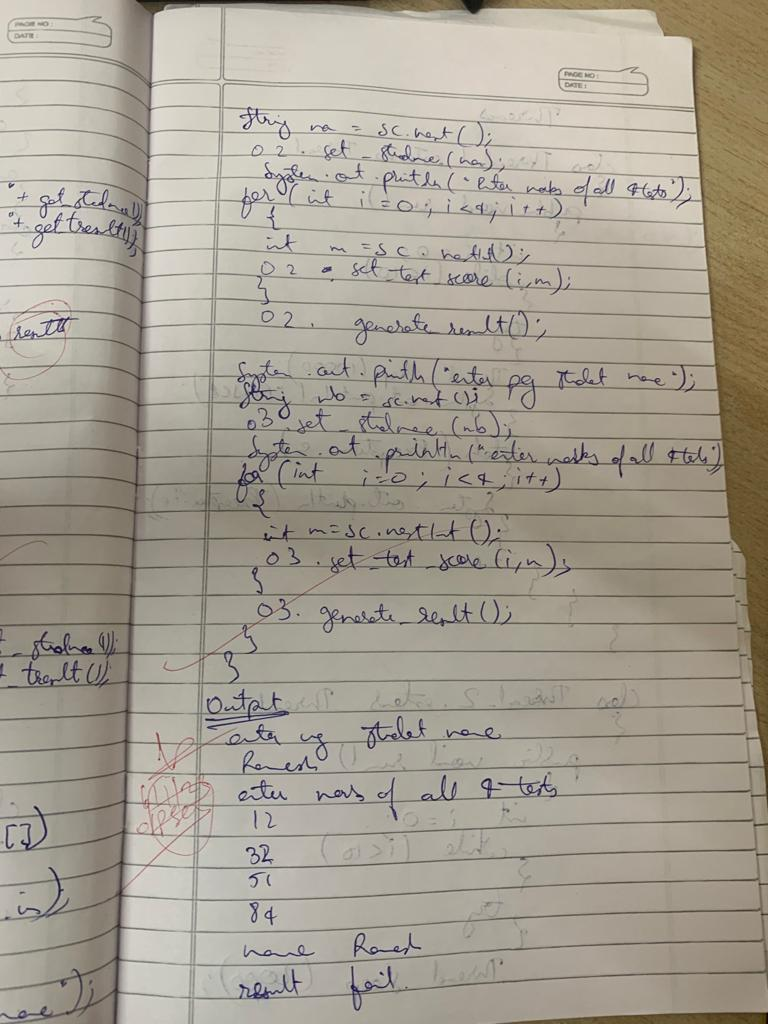 PAGE NO :
DATE :
"+ get_stdname());
"+ getTresult());
result
_stdname());
_tresult();
[])
.in);
name");
PAGE NO :
DATE :
String na = sc.next();
O2. set_stdname(na);
System.out.println("enter marks of all 4 tests");
for (int i=0; i<4; i++)
{
int m = sc.nextInt();
O2. set_test_score (i,m);
}
O2. generate_result();
System.out.println("enter pg student name");
String nb = sc.next();
O3.set_stdname(nb);
System.out.println("enter marks of all 4 tests");
for (int i=0; i<4; i++)
{
int m=sc.nextInt();
O3.set_test_score(i,m);
}
O3. generate_result();
}
}
Output
enter ug student name
Ramesh
enter marks of all 4 tests
12
32
51
84
name Ramesh
result fail.